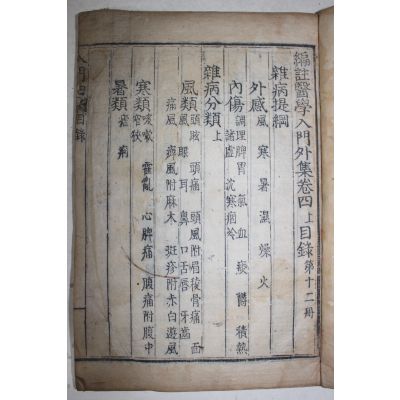 編註醫學入門外集卷四上目錄 第十二冊
雜病提綱
外感 風 寒 暑 濕 燥 火
內傷 調理脾胃 氣 血 痰 鬱 積熱
諸虛 沈寒痼冷
雜病分類上
風類 頭眩 頭痛 頭風附眉後骨痛 面
眼 耳 鼻 口舌唇 牙齒
痛風 痺風附麻木 斑疹附赤白遊風
寒類 咳嗽 霍亂 心脾痛 腹痛附腹中
窄狹
暑類 瘧 痢